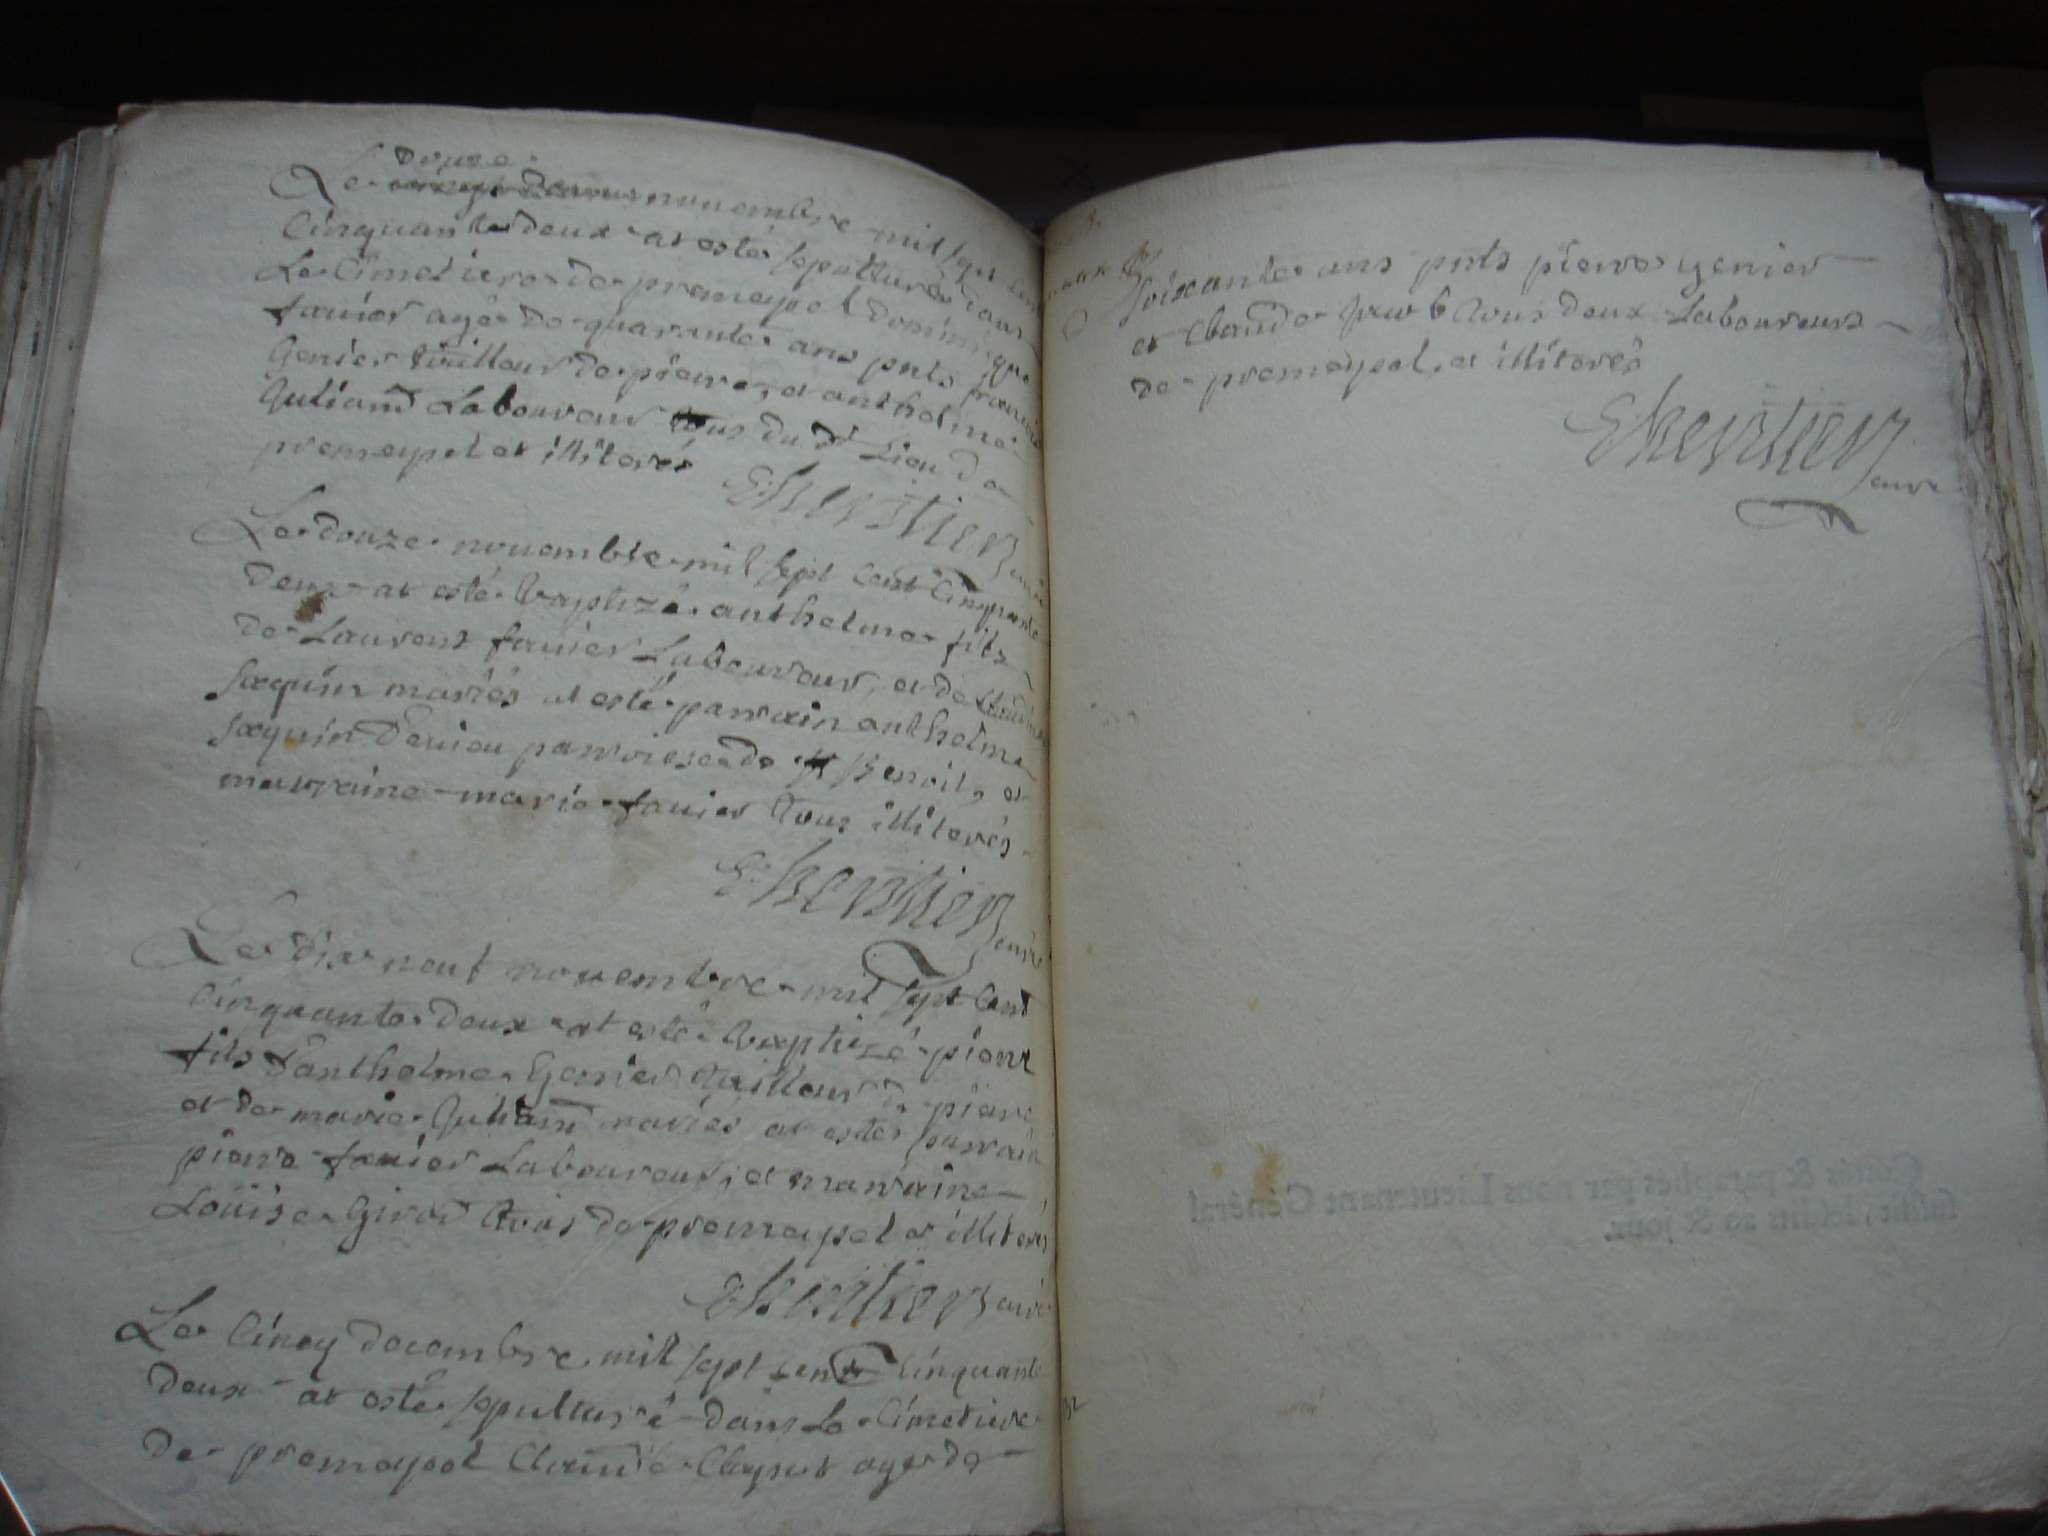 douze
Le novembre mil sept cent
Cinquante deux at esté sepulturé dans
Le Cimetiere de premeysel dominique
favier agé de quarante ans pnts francois
Genier tailleur de pierre, et anthelme
Guliand Laboureur tous du dt Lieu de
premeysel et illiterés
Lheritier curé
Le douze novembre mil sept cent Cinquante
deux at esté baptizé anthelme fils
de Laurent favier Laboureur, et de Claudine
Jaquin mariés at esté parrain anthelme
Jaquin d'evieu parroiesse de st Benoit, et
marraine marie favier tous illiterés
Lheritier curé
Le dix neuf novembre mil sept cent
Cinquante deux at esté baptizé pierre
fils d'anthelme Genier tailleur de pierre
et de marie Guliand mariés at estés parrain
pierre favier Laboureur, et marraine
Loüise Girod tous de premeysel et illiterés
Lheritier curé
Le Cinq decembre mil sept cent Cinquante
deux at esté sepulturé dans Le Cimetiere
de premeysel Claude age de
soixante ans pnts pierre genier
et Claude tous deux Laboureurs
de premeysel, et illiterés
Lheritier curé
Cottés & paraphés par nous Lieutenant Général
susdit, lesdits an & jour.